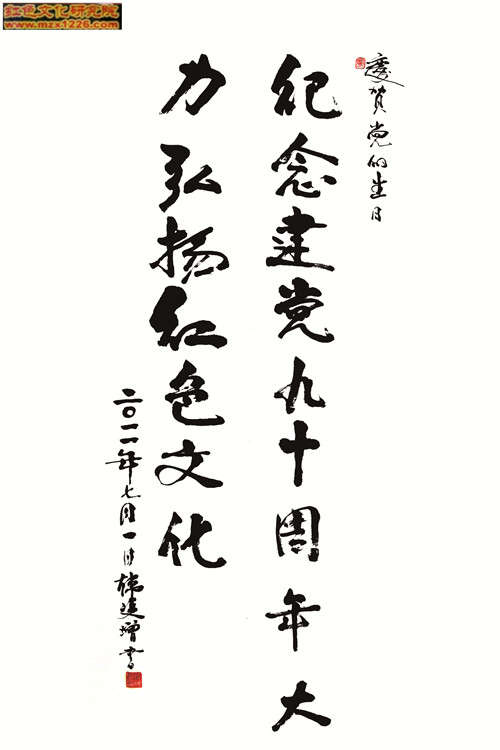 红色文化研究院
www.mzx1226.com
庆贺党的生日
纪念建党九十周年大
力弘扬红色文化
二〇一一年七月一日韩廷增书